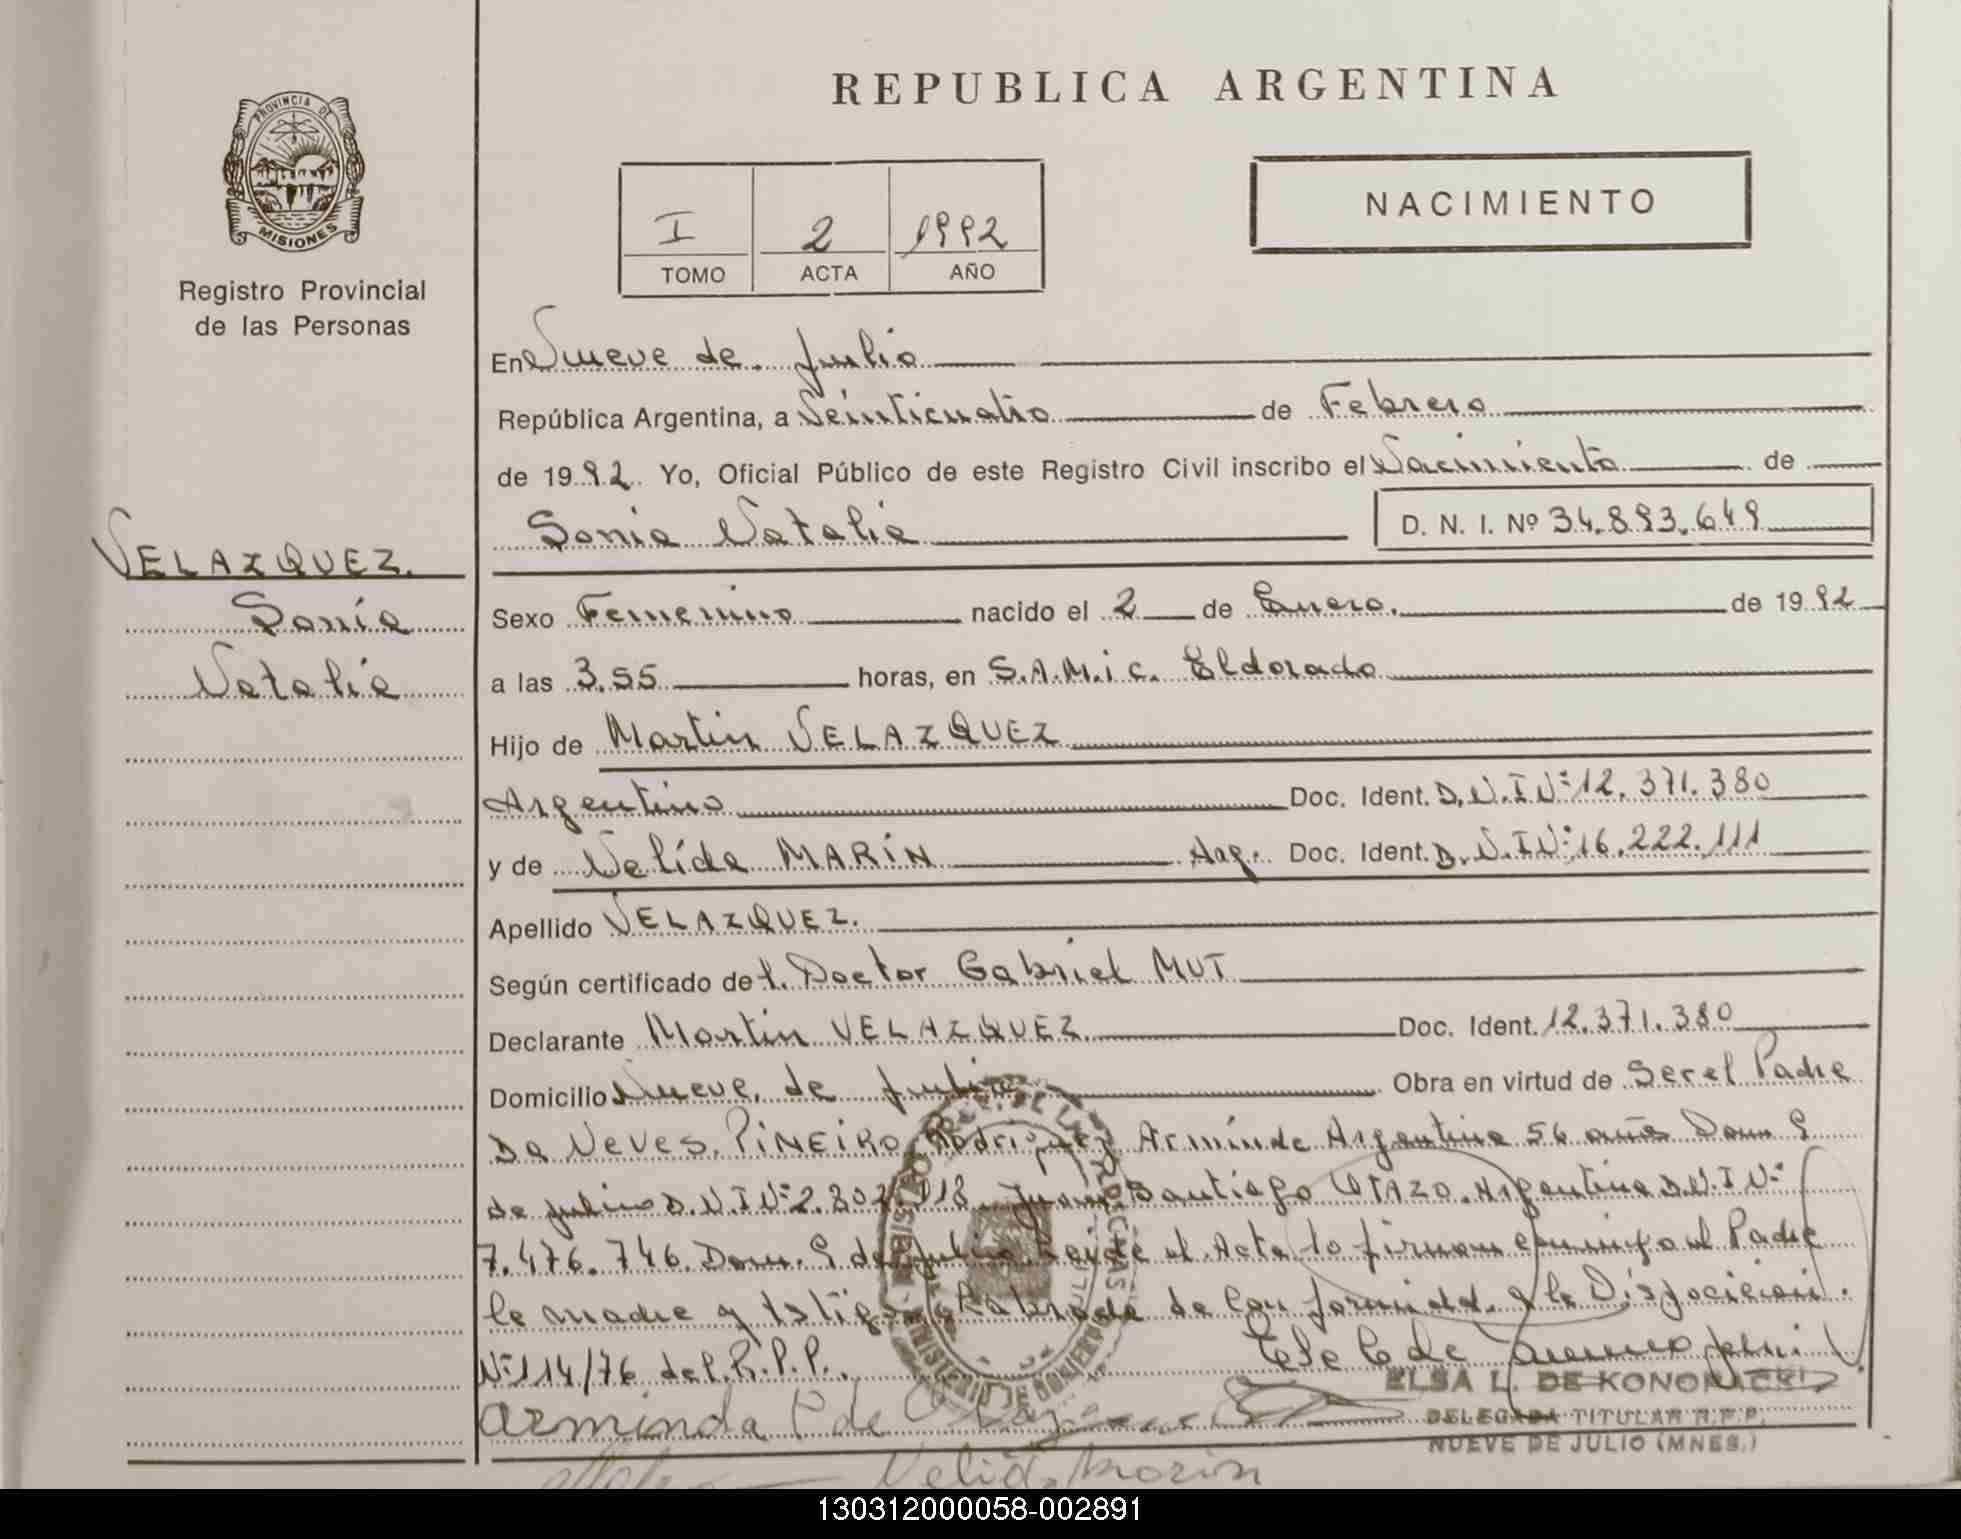 REPUBLICA ARGENTINA
PROVINCIA DE
MISIONES
Registro Provincial
de las Personas
I 2 1992
TOMO ACTA AÑO
NACIMIENTO
En Nueve de Julio
República Argentina, a Veinticuatro de Febrero
de 1992 Yo, Oficial Público de este Registro Civil inscribo el Nacimiento de
Sonia Natalia D. N. I. Nº 34.893.649
VELAZQUEZ.
Sonia
Natalia
Sexo Femenino nacido el 2 de Enero. de 1992
a las 3.55 horas, en S.A.M.i.c. Eldorado
Hijo de Martin VELAZQUEZ
Argentino Doc. Ident. D.N.I Nº 12.371.380
y de Nelida MARiN Arg. Doc. Ident. D.N.I Nº 16.222.111
Apellido VELAZQUEZ.
Según certificado del. Doctor Gabriel MUT
Declarante Martin VELAZQUEZ Doc. Ident. 12.371.380
Domicilio Nueve de Julio Obra en virtud de Ser el Padre
Da Neves, PiNEiRO Rodriguez Arminda Argentina 56 años Dom 9
de julio D.N.I Nº 2.802.118 Juan Santiago OTAZO. Argentino D.N.I Nº
7.476.746. Dom. 9 de Julio Leyda el Acta lo firman conmigo el Padre
la madre y de Conformidad a la Disposicion
Nº 114/76 del R.P.P.
ELSA L. DE KONONACKI
Arminda P de
DELEGADA TITULAR R.P.P.
NUEVE DE JULIO (MNES.)
Nelida Morin
130312000058-002891